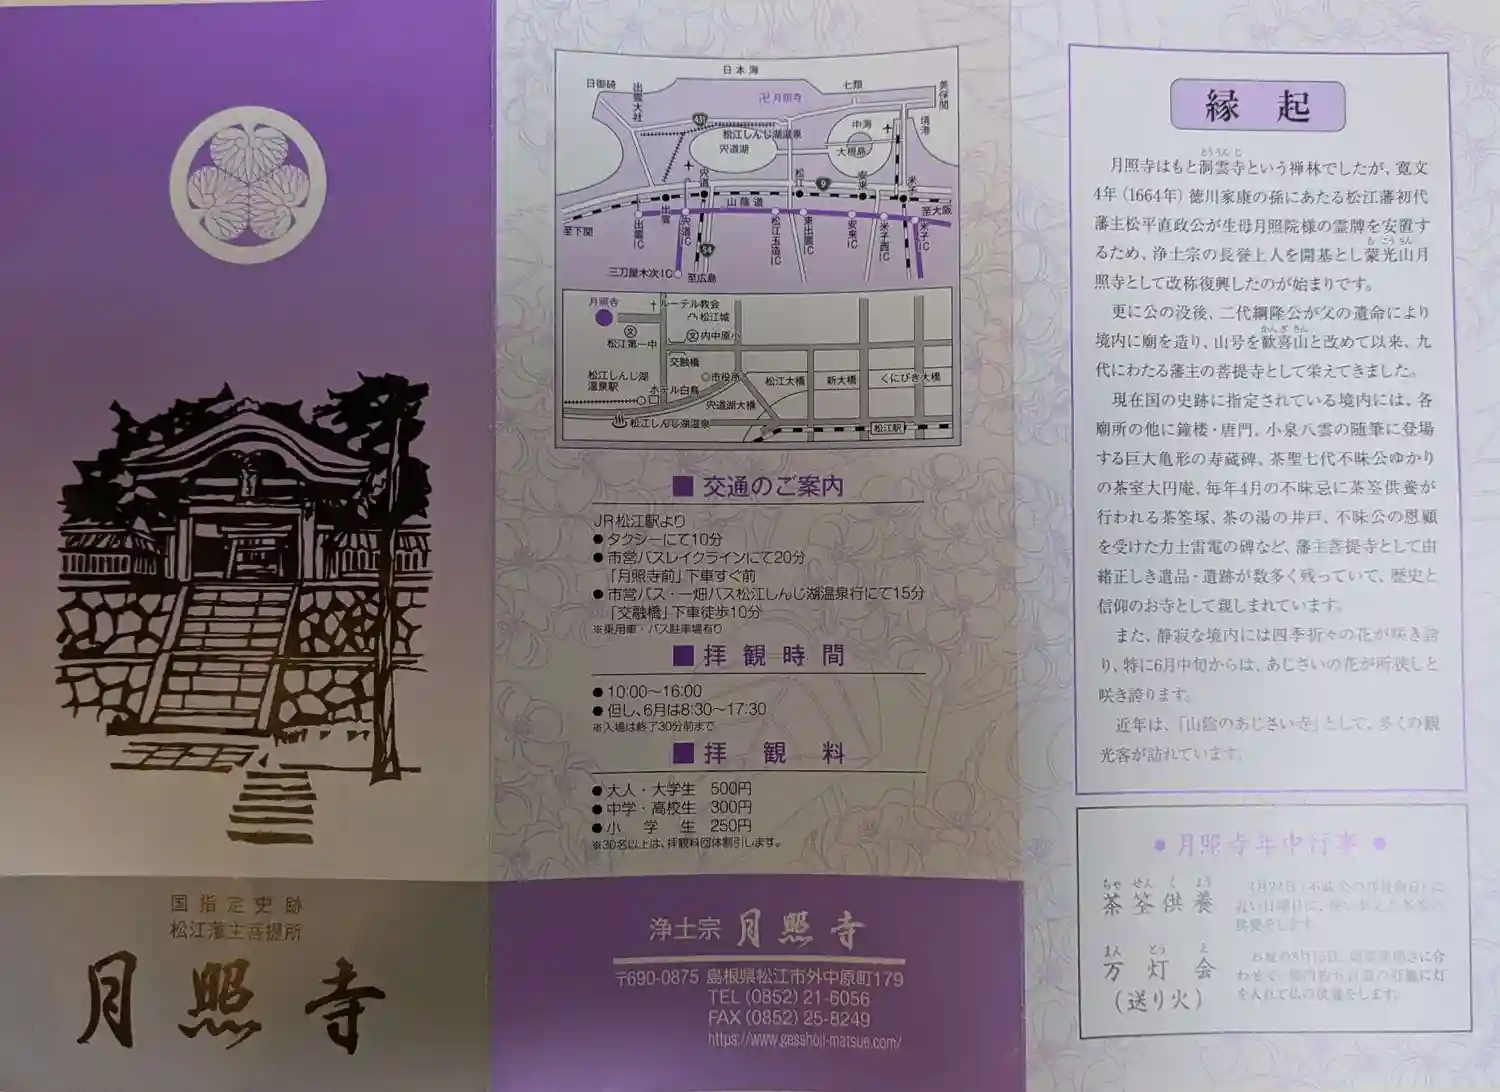 国指定史跡
松江藩主菩提所
月照寺
日本海
日御碕
出雲大社
卍月照寺
七類
美保関
境港
431
松江しんじ湖温泉
宍道湖
中海
大根島
宍道
松江
9
安来
米子
出雲
山陰道
至大阪
至下関
出雲IC
宍道IC
松江玉造IC
東出雲IC
安来IC
米子西IC
米子IC
54
三刀屋木次IC
至広島
月照寺
ルーテル教会
松江城
文
松江第一中
文内中原小
交融橋
松江しんじ湖
温泉駅
◎市役所
ホテル白鳥
松江大橋
新大橋
くにびき大橋
宍道湖大橋
松江しんじ湖温泉
松江駅
■交通のご案内
JR松江駅より
●タクシーにて10分
●市営バスレイクラインにて20分
「月照寺前」下車すぐ前
●市営バス・一畑バス松江しんじ湖温泉行にて15分
「交融橋」下車徒歩10分
※乗用車・バス駐車場有り
■拝観時間
●10:00〜16:00
●但し、6月は8:30〜17:30
※入場は終了30分前まで
■拝観料
●大人・大学生 500円
●中学・高校生 300円
●小学生 250円
※30名以上は、拝観料団体割引します。
浄土宗 月照寺
〒690-0875 島根県松江市外中原町179
TEL(0852)21-6056
FAX(0852)25-8249
https://www.gesshoji-matsue.com/
縁起
とううんじ
月照寺はもと洞雲寺という禅林でしたが、寛文
4年(1664年)徳川家康の孫にあたる松江藩初代
藩主松平直政公が生母月照院様の霊牌を安置す
むこうさん
るため、浄土宗の長誉上人を開基とし蒙光山月
照寺として改称復興したのが始まりです。
更に公の没後、二代綱隆公が父の遺命により
かんぎさん
境内に廟を造り、山号を歓喜山と改めて以来、九
代にわたる藩主の菩提寺として栄えてきました。
現在国の史跡に指定されている境内には、各
廟所の他に鐘楼・唐門、小泉八雲の随筆に登場
する巨大亀形の寿蔵碑、茶聖七代不昧公ゆかり
の茶室大円庵、毎年4月の不昧忌に茶筌供養が
行われる茶筌塚、茶の湯の井戸、不昧公の恩顧
を受けた力士雷電の碑など、藩主菩提寺として由
緒正しき遺品・遺跡が数多く残っていて、歴史と
信仰のお寺として親しまれています。
また、静寂な境内には四季折々の花が咲き誇
り、特に6月中旬からは、あじさいの花が所狭しと
咲き誇ります。
近年は、「山陰のあじさい寺」として、多くの観
光客が訪れています。
●月照寺年中行事●
ちゃせんくよう
茶筌供養
4月24日(不昧公の
近い日曜日に、
供養をします。
まんとうえ
万灯会
(送り火)
お盆の8月16日、
わせて、境内の
を入れて仏の供養をします。